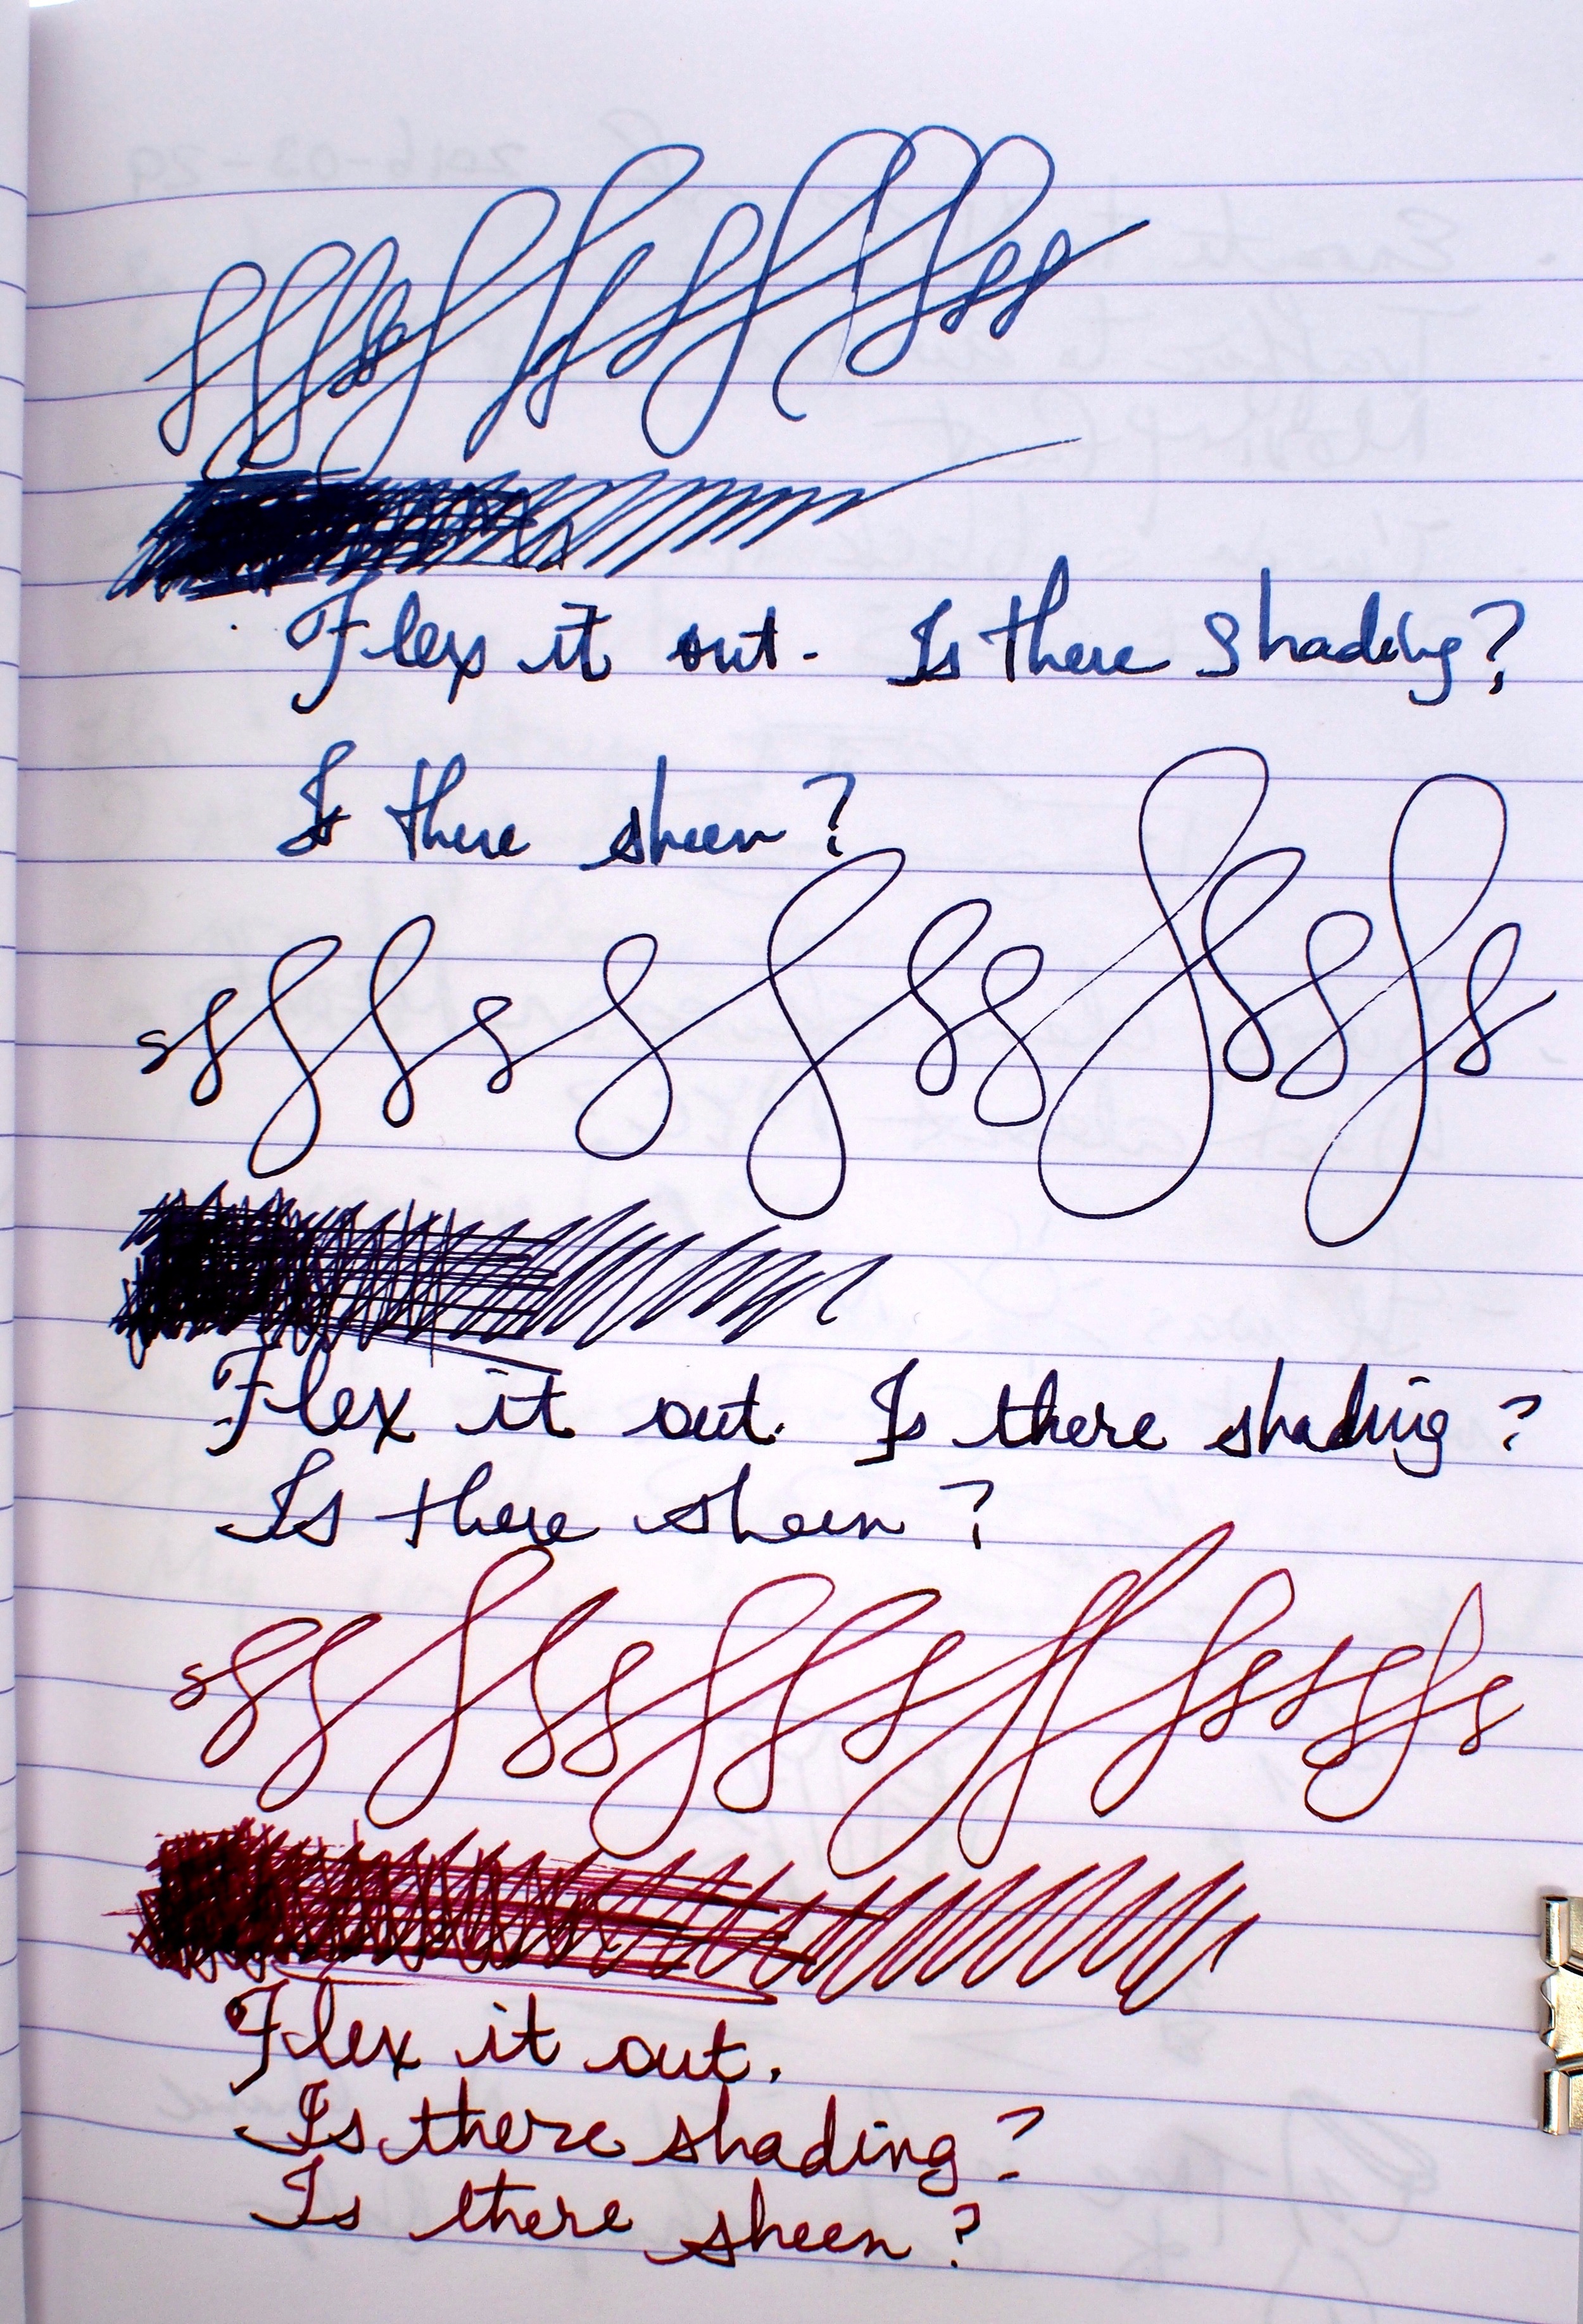 Flex it out. Is there shading?
Is there sheen?
Flex it out. Is there shading?
Is there sheen?
Flex it out.
Is there shading?
Is there sheen?